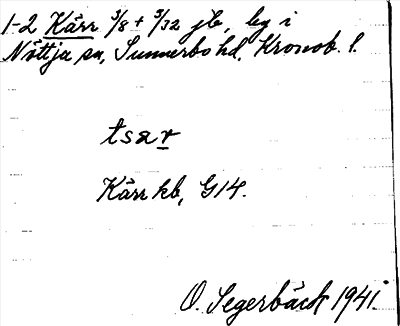 1-2 Kärr 3/8 + 3/32 jb, by i
Nöttja sn, Sunnerbo hd, Kronob. l.
tsar
Kärr kb, G14.
O. Segerbäck 1941